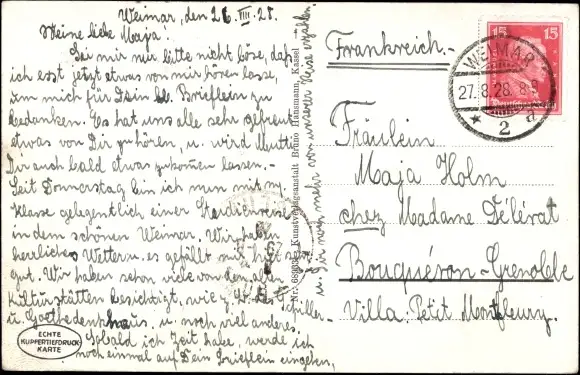 Weimar, den 26.VIII.28.
Meine liebe Maja!
Sei mir nur bitte nicht böse, daß
ich erst jetzt etwas von mir hören lasse,
um mich für Dein lb. Brieflein zu
bedanken. Es hat uns alle sehr gefreut
etwas von Dir zu hören, u. wird Mutti
Dir auch bald etwas zukommen lassen.-
Seit Donnerstag bin ich nun mit m.
Klasse gelegentlich einer Studienreise
in dem schönen Weimar. Wir haben
herrliches Wetter u. es gefällt mir hier sehr
gut. Wir haben schon viele von den alten
Kulturstätten besichtigt, wie z. B. Schiller-
u. Goethedenkhaus, u. noch viel anderes.
Sobald ich Zeit habe, werde ich
noch einmal auf Dein Brieflein eingehen,
u. Dir mehr von unserer Reise erzählen.
ECHTE
KUPFERTIEFDRUCK-
KARTE
Kunstverlagsanstalt Bruno Hansmann, Kassel
Frankreich.-
Fräulein
Maja Holm
chez Madame Délérat
Bouquéron-Grenoble
Villa Petit Montfleury.
15 15
WEIMAR
27.8.28. 8-9
* 2 d